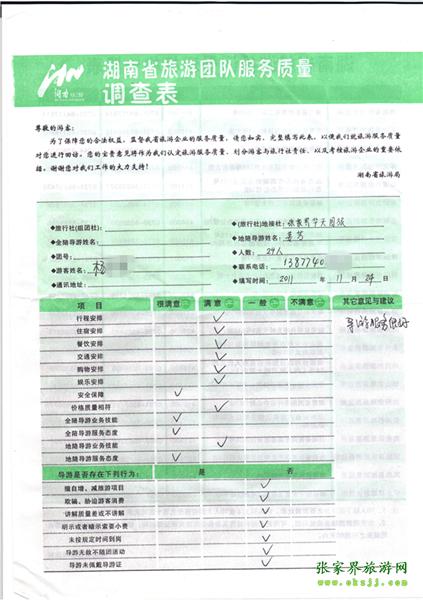 湖南省旅游团队服务质量
调查表
尊敬的游客:
为了保障您的合法权益,监督我省旅游企业的服务质量,请您如实、完整填写此表,以便我们就旅游服务质量
对您进行回访。您的宝贵意见将作为我们认定旅游服务质量、划分游客与旅行社责任、以及考核旅游企业的重要依
据。谢谢您对我们工作的大力支持!
湖南省旅游局
◆旅行社(组团社): ◆(旅行社)地接社:张家界中天国旅
◆全陪导游姓名: ◆地陪导游姓名:
◆团号: ◆人数:24人
◆游客姓名:杨 ◆联系电话:1387740
◆通讯地址: ◆填写时间:2011年11月24日
项目 很满意 满意 一般 不满意 其它意见与建议
行程安排 ✓ 导游服务很好
住宿安排 ✓
餐饮安排 ✓
交通安排 ✓
购物安排 ✓
娱乐安排 ✓
安全保障 ✓
价格质量相符 ✓
全陪导游业务技能 ✓
全陪导游服务态度 ✓
地陪导游业务技能 ✓
地陪导游服务态度 ✓
导游是否存在下列行为: 是 否
擅自增、减旅游项目 ✓
欺骗、胁迫游客消费 ✓
讲解质量差或不讲解 ✓
明示或者暗示索要小费 ✓
未按规定时间到岗 ✓
导游无故不随团活动 ✓
导游未佩戴导游证 ✓
张家界旅游网
www.okzjj.com